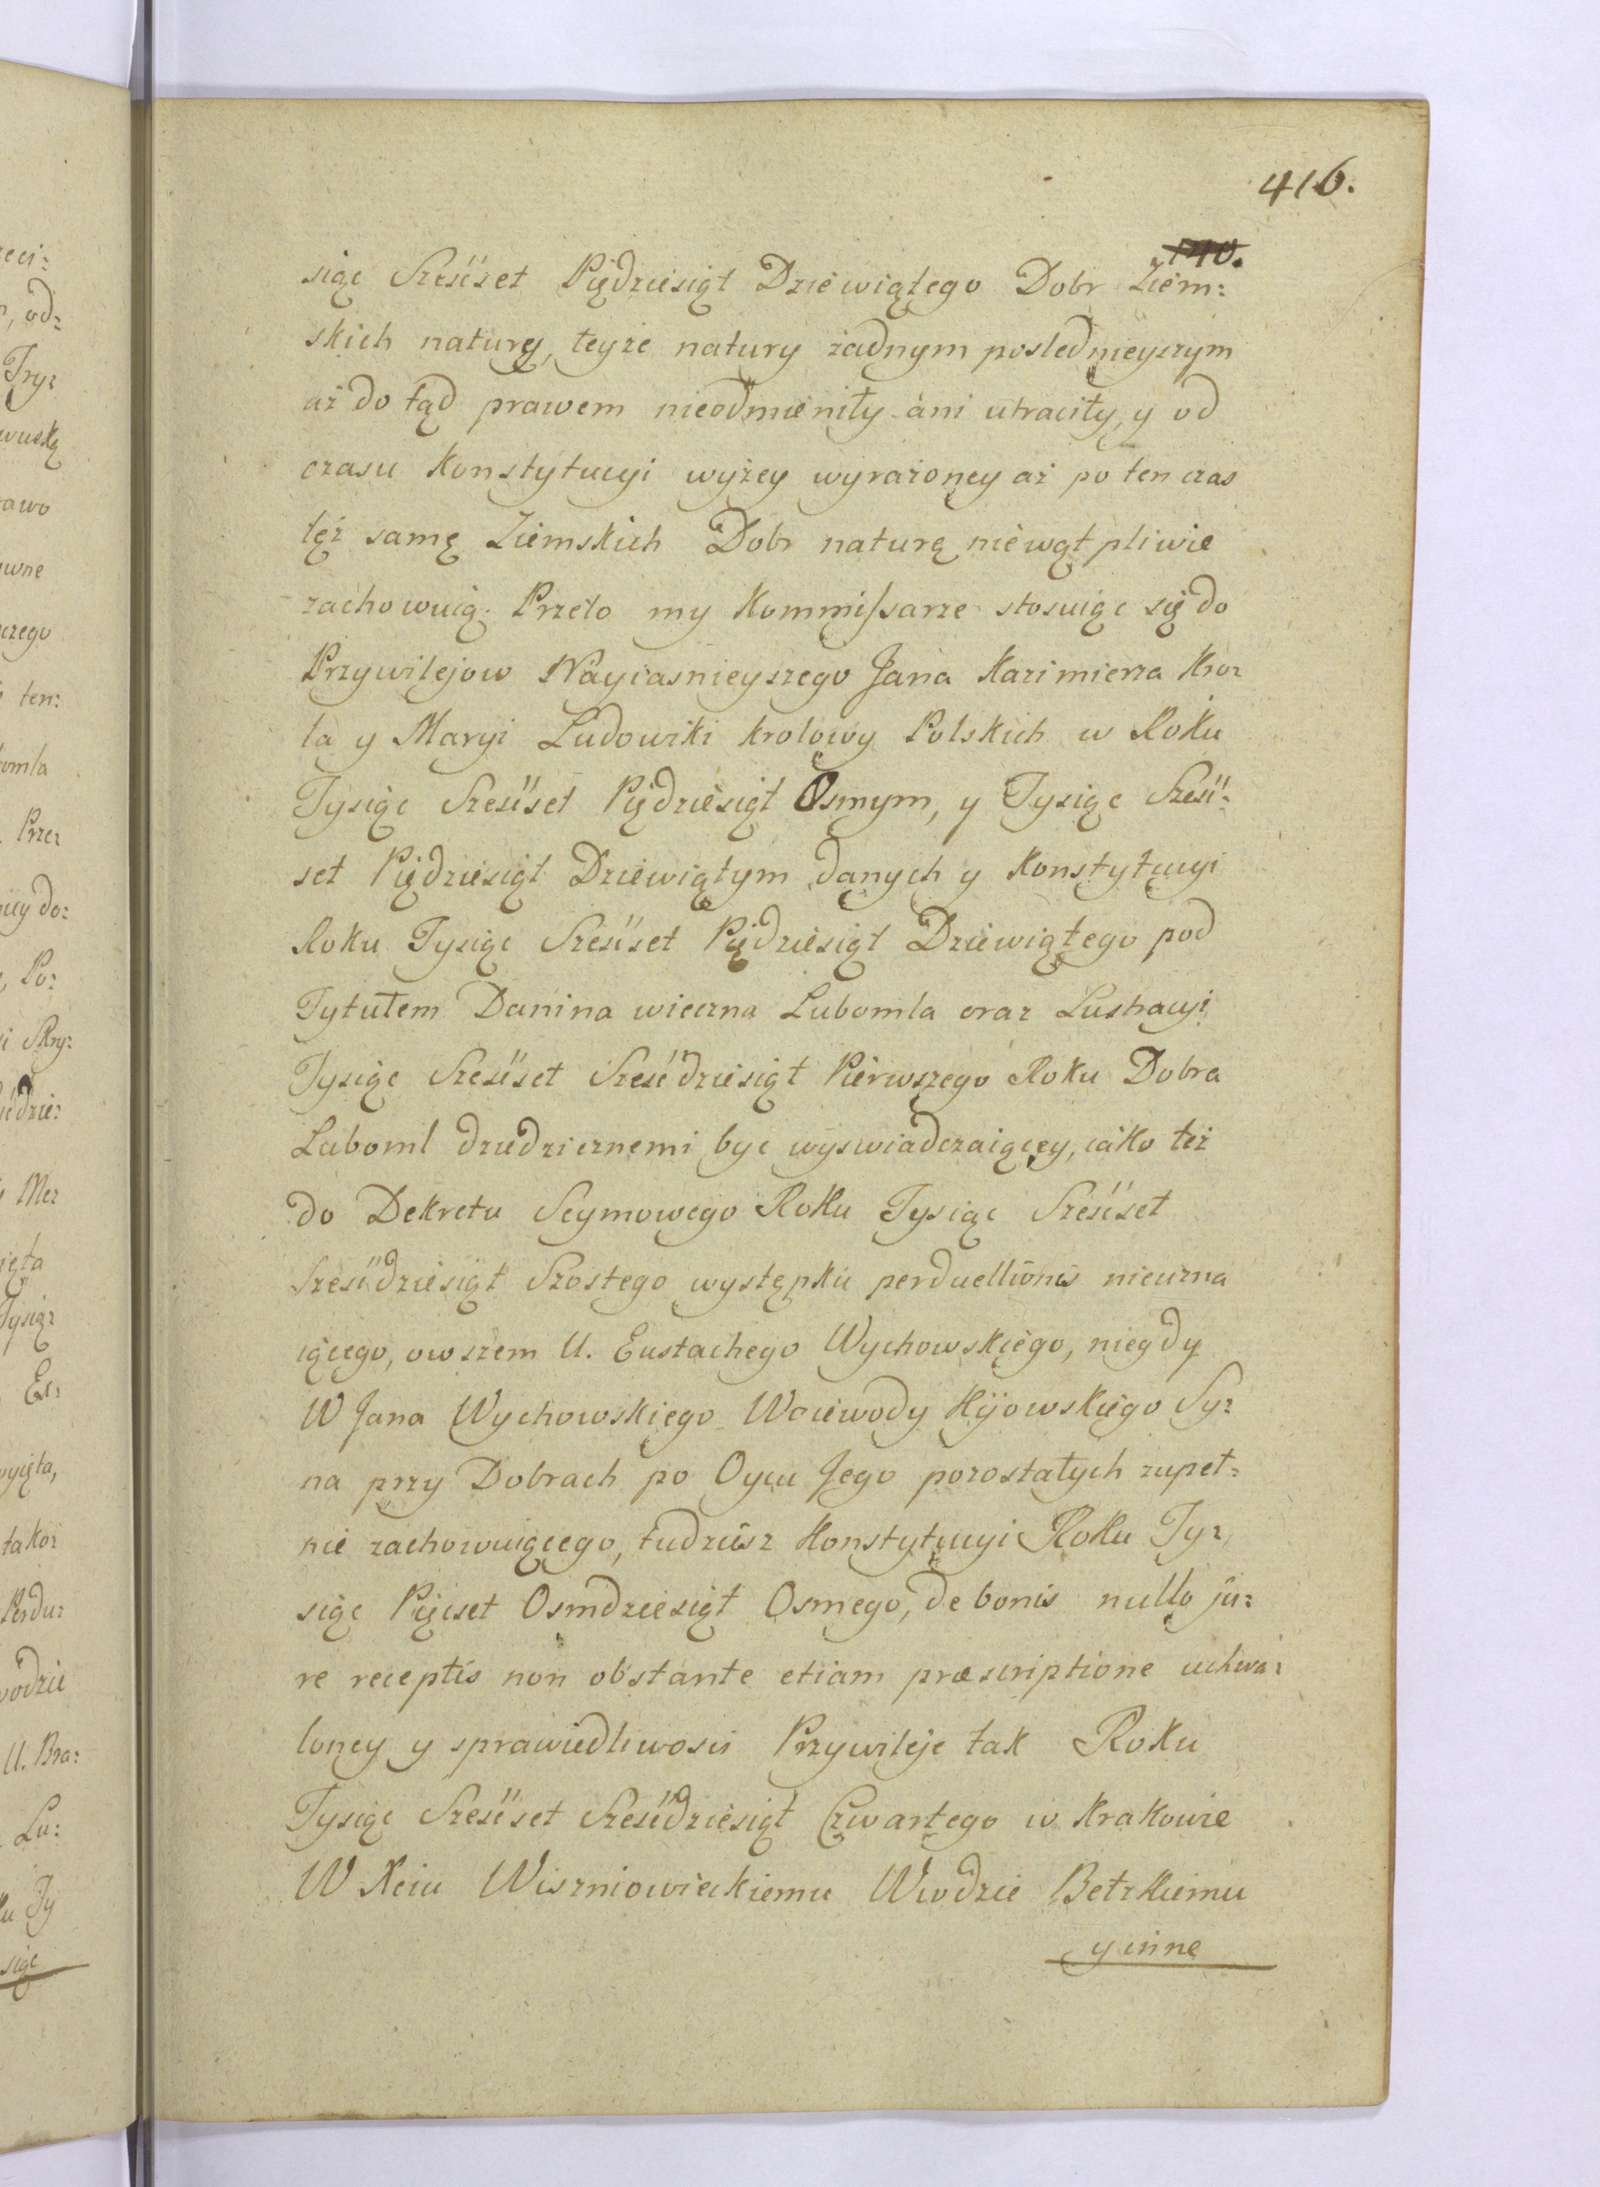 416.
140.
siąc Sześćset Pięćdziesiąt Dziewiątego Dobr Ziem:
skich naturę, teyże natury żadnym poslednieyszym
aż do tąd prawem nieodmieniły ani utraciły, y od
czasu Konstytucyi wyżey wyrażoney aż po ten czas
też samę Ziemskich Dobr naturę niewątpliwie
zachowuią. Przeto my Kommissarze stosuiąc się do
Przywilejow Nayiasnieyszego Jana Kazimierza Kro:
la y Maryi Ludowiki krolowy Polskich w Roku
Tysiąc Sześćset Pięćdziesiąt Osmym, y Tysiąc Sześć:
set Pięćdziesiąt Dziewiątym danych y Konstytucyi
Roku Tysiąc Sześćset Pięćdziesiąt Dziewiątego pod
Tytułem Danina wieczna Lubomla oraz Lustracyi
Tysiąc Sześćset Sześćdziesiąt Pierwszego Roku Dobra
Luboml dziedzicznemi byc wyswiadczaiącey, iako też
do Dekretu Seymowego Roku Tysiąc Sześćset
Sześćdziesiąt Szostego występku perduellionis nieuzna
iącego, owszem U. Eustachego Wychowskiego, niegdy
W Jana Wychowskiego Woiewody Kijowskiego Sy:
na przy Dobrach po Oycu Jego pozostałych zupeł:
nie zachowuiącego, tudziesz Konstytucyi Roku Ty:
siąc Pięcset Osmdziesiąt Osmego, de bonis nullo ju:
re receptis non obstante etiam præscriptione uchwa:
loney y sprawiedliwosci Przywileje tak Roku
Tysiąc Sześćset Sześćdziesiąt Czwartego w Krakowie
W Xciu Wiszniowieckiemu Wwodzie Bełzkiemu
y inne